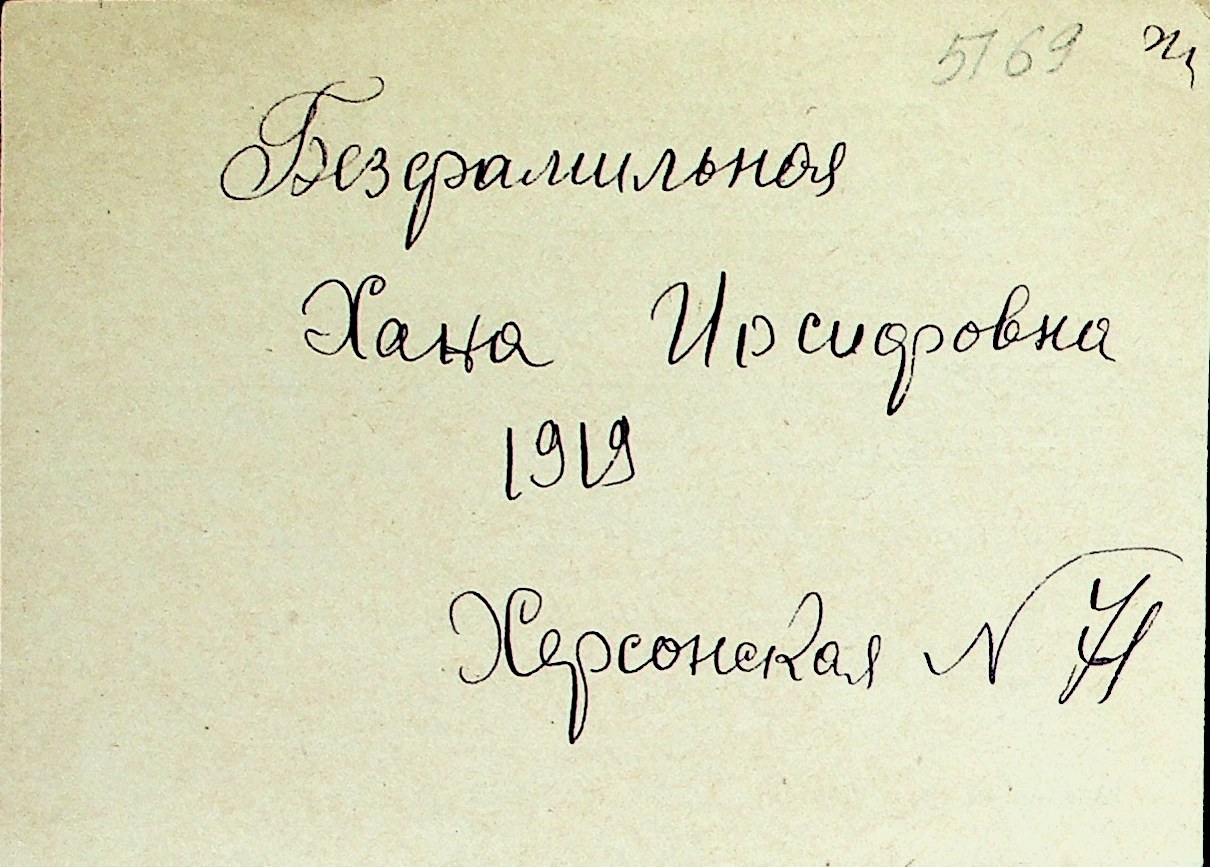 5169
Безфамильная
Хана Иосифовна
1919
Херсонская N